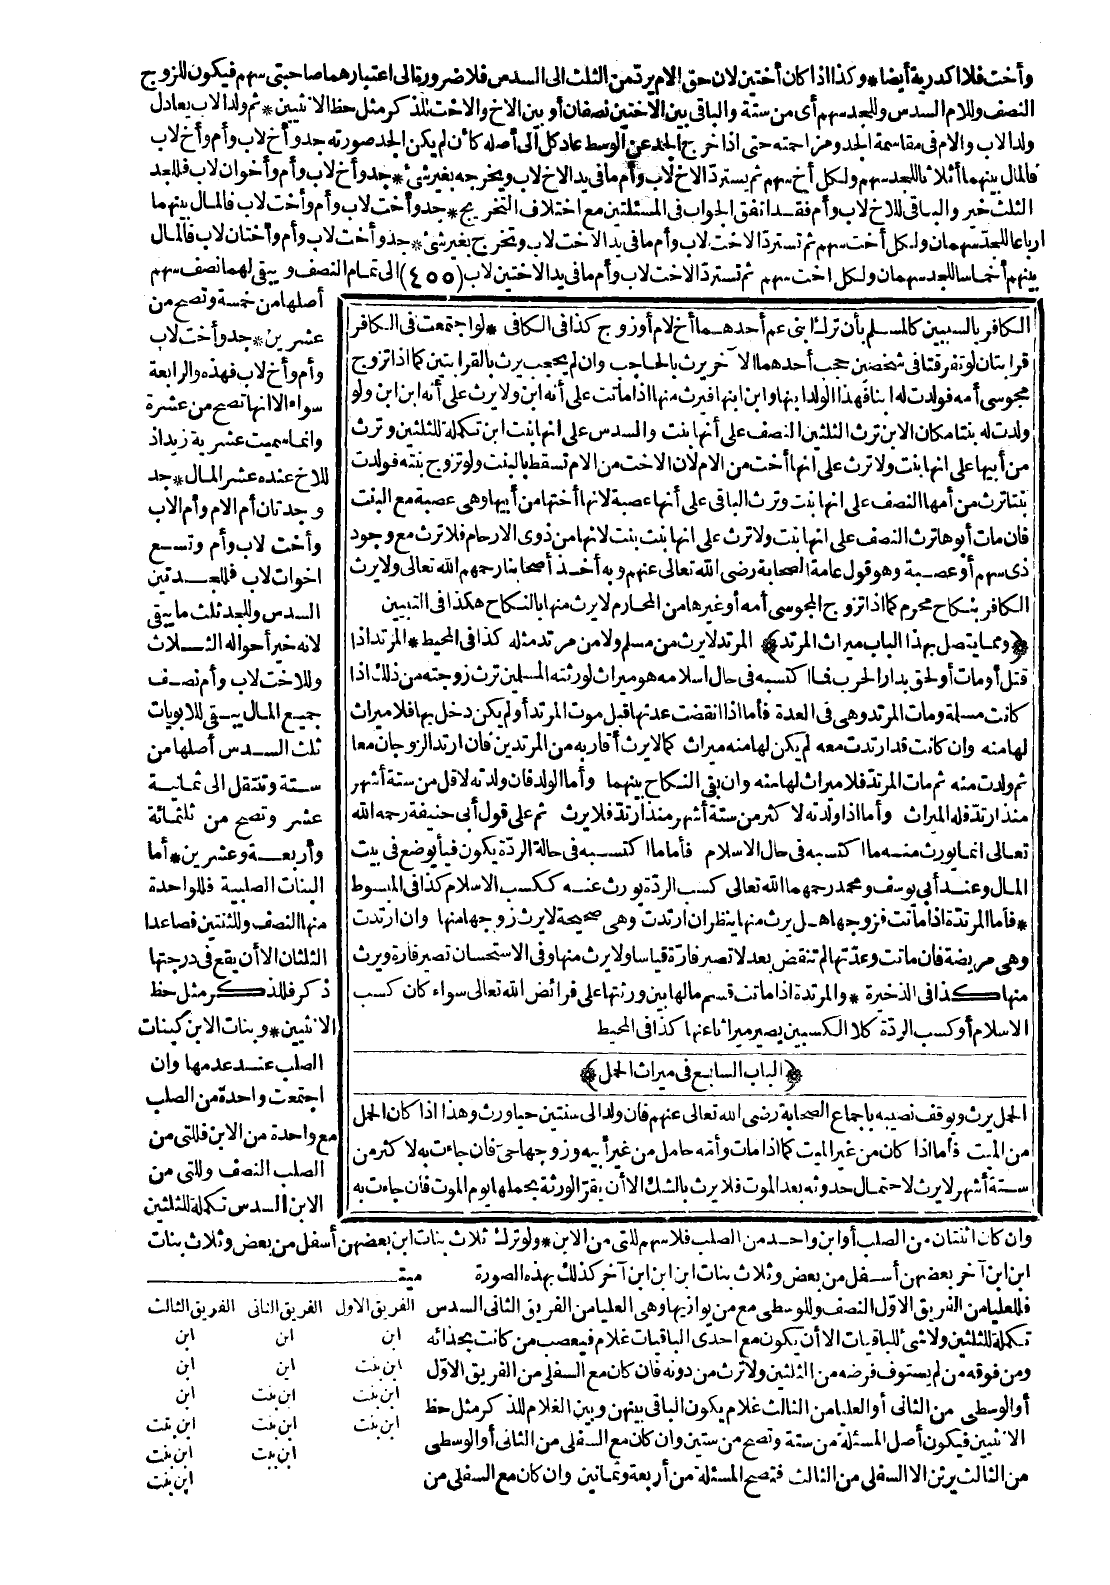 وأخت فلا اكدرية أيضا * وكذا اذا كان أختين لان حق الام يرد من الثلث الى السدس فلا ضرورة الى اعتبارهما صاحبتى سهم فيكون للزوج
النصف وللام السدس وللجد سهم أى من ستة والباقى بين الاختين نصفان أو بين الاخ والاخت للذكر مثل حظ الانثيين * ثم ولد الاب يعادل
ولد الاب والام فى مقاسمة الجد ومزاحمته حتى اذا خرج الجد عن الوسط عاد كل الى أصله كأن لم يكن الجد صورته جد وأخ لاب وأم وأخ لاب
فالمال بينهما أثلاثا للجد سهم ولكل أخ سهم ثم يسترد الاخ لاب وأم ما فى يد الاخ لاب ويخرجه بغير شئ * جد وأخ لاب وأم وأخوان لاب فللجد
الثلث خير والباقى للاخ لاب وأم فقد اتفق الجواب فى المسئلتين مع اختلاف التخريج * جد وأخت لاب وأم وأخت لاب فالمال بينهما
ارباعا للجد سهمان ولكل أخت سهم ثم تسترد الاخت لاب وأم ما فى يد الاخت لاب وتخرج بغير شئ * جد وأخت لاب وأم وأختان لاب فالمال
بينهم أخماسا للجد سهمان ولكل اخت سهم ثم تسترد الاخت لاب وأم ما فى يد الاختين لاب (٤٥٥) الى تمام النصف ويبقى لهما نصف سهم
أصلها من خمسة وتصح من
عشرين * جد وأخت لاب
وأم وأخ لاب فهذه والرابعة
سواء الا انها تصح من عشرة
وانما سميت عشرية زيد اذ
للاخ عنده عشر المال * جد
وجدتان أم الام وأم الاب
وأخت لاب وأم وتسع
اخوات لاب فللجدتين
السدس وللجد ثلث ما يبقى
لانه خير أحواله الثلاث
وللاخت لاب وأم نصف
جميع المال يبقى للابويات
ثلث السدس أصلها من
ستة وتنتقل الى ثمانية
عشر وتصح من ثلثمائة
وأربعة وعشرين * أما
البنات الصلبية فللواحدة
منها النصف وللثنتين فصاعدا
الثلثان الا أن يقع فى درجتها
ذكر فللذكر مثل حظ
الانثيين * وبنات الابن كبنات
الصلب عند عدمها وان
اجتمعت واحدة من الصلب
مع واحدة من الابن فللتى من
الصلب النصف وللتى من
الابن السدس تكملة للثلثين
الكافر بالسببين كالمسلم بأن ترك ابنى عم أحدهما أخ لام أو زوج كذا فى الكافى * لو اجتمعت فى الكافر
قرابتان لو تفرقتا فى شخصين حجب أحدهما الآخر يرث بالحاجب وان لم يحجب يرث بالقرابتين كما اذا تزوج
مجوسى أمه فولدت له ابنا فهذا الولد ابنها وابن ابنها فيرث منها اذا ماتت على أنه ابن ولا يرث على أنه ابن ابن ولو
ولدت له بنتا مكان الابن ترث الثلثين النصف على أنها بنت والسدس على انها بنت ابن تكملة للثلثين وترث
من أبيها على انها بنت ولا ترث على انها أخت من الام لان الاخت من الام تسقط بالبنت ولو تزوج بنته فولدت
بنتا ترث من أمها النصف على انها بنت وترث الباقى على أنها عصبة لانها أختها من أبيها وهى عصبة مع البنت
فان مات أبوها ترث النصف على انها بنت ولا ترث على انها بنت بنت لانها من ذوى الارحام فلا ترث مع وجود
ذى سهم أو عصبة وهو قول عامة الصحابة رضى الله تعالى عنهم وبه أخذ أصحابنا رحمهم الله تعالى ولا يرث
الكافر بنكاح محرم كما اذا تزوج المجوسى أمه أو غيرها من المحارم لا يرث منها بالنكاح هكذا فى التبيين
﴿ومما يتصل بهذا الباب ميراث المرتد﴾ المرتد لا يرث من مسلم ولا من مرتد مثله كذا فى المحيط * المرتد اذا
قتل أو مات أو لحق بدار الحرب فما اكتسبه فى حال اسلامه هو ميراث لورثته المسلمين ترث زوجته من ذلك اذا
كانت مسلمة ومات المرتد وهى فى العدة فأما اذا انقضت عدتها قبل موت المرتد أو لم يكن دخل بها فلا ميراث
لها منه وان كانت قد ارتدت معه لم يكن لها منه ميراث كما لا يرث أقاربه من المرتدين فان ارتد الزوجان معا
ثم ولدت منه ثم مات المرتد فلا ميراث لها منه وان بقى النكاح بينهما وأما الولد فان ولدته لاقل من ستة أشهر
منذ ارتد فله الميراث وأما اذا ولدته لاكثر من ستة أشهر منذ ارتد فلا يرث ثم على قول أبى حنيفة رحمه الله
تعالى انما يورث منه ما اكتسبه فى حال الاسلام فأما ما اكتسبه فى حالة الردة يكون فيأ يوضع فى بيت
المال وعند أبى يوسف ومحمد رحمهما الله تعالى كسب الردة يورث عنه ككسب الاسلام كذا فى المبسوط
* فأما المرتدة اذا ماتت فزوجها هل يرث منها ينظر ان ارتدت وهى صحيحة لا يرث زوجها منها وان ارتدت
وهى مريضة فان ماتت وعدتها لم تنقض بعد لا تصير فارة قياسا ولا يرث منها وفى الاستحسان تصير فارة ويرث
منها كذا فى الذخيرة * والمرتدة اذا ماتت قسم مالها بين ورثتها على فرائض الله تعالى سواء كان كسب
الاسلام أو كسب الردة كلا الكسبين يصير ميراثا عنها كذا فى المحيط
﴿الباب السابع فى ميراث الحمل﴾
الحمل يرث ويوقف نصيبه باجماع الصحابة رضى الله تعالى عنهم فان ولد الى سنتين حيا ورث وهذا اذا كان الحمل
من الميت فأما اذا كان من غير الميت كما اذا مات وأمه حامل من غير أبيه وزوجها حى فان جاءت به لاكثر من
ستة أشهر لا يرث لاحتمال حدوثه بعد الموت فلا يرث بالشك الا أن يقر الورثة بحملها يوم الموت فان جاءت به
وان كان اثنتان من الصلب أو ابن واحد من الصلب فلا سهم للتى من الابن * ولو ترك ثلاث بنات ابن بعضهن أسفل من بعض وثلاث بنات
ابن ابن آخر بعضهن أسفل من بعض وثلاث بنات ابن ابن ابن آخر كذلك بهذه الصورة ميت
فللعليا من الفريق الاول النصف وللوسطى مع من يوازيها وهى العليا من الفريق الثانى السدس
تكملة للثلثين ولا شئ للباقيات الا أن يكون مع احدى الباقيات غلام فيعصب من كانت بحذائه
ومن فوقه من لم يستوف فرضه من الثلثين ولا ترث من دونه فان كان مع السفلى من الفريق الاول
أو الوسطى من الثانى أو العليا من الثالث غلام يكون الباقى بينهن وبين الغلام للذكر مثل حظ
الانثيين فيكون أصل المسئلة من ستة وتصح من ستين وان كان مع السفلى من الثانى أو الوسطى
من الثالث يرثن الا السفلى من الثالث فتصح المسئلة من أربعة وثمانين وان كان مع السفلى من
الفريق الاول الفريق الثانى الفريق الثالث
ابن ابن ابن
ابن بنت ابن ابن
ابن بنت ابن بنت ابن
ابن بنت ابن بنت ابن بنت
ابن بنت ابن بنت
ابن بنت